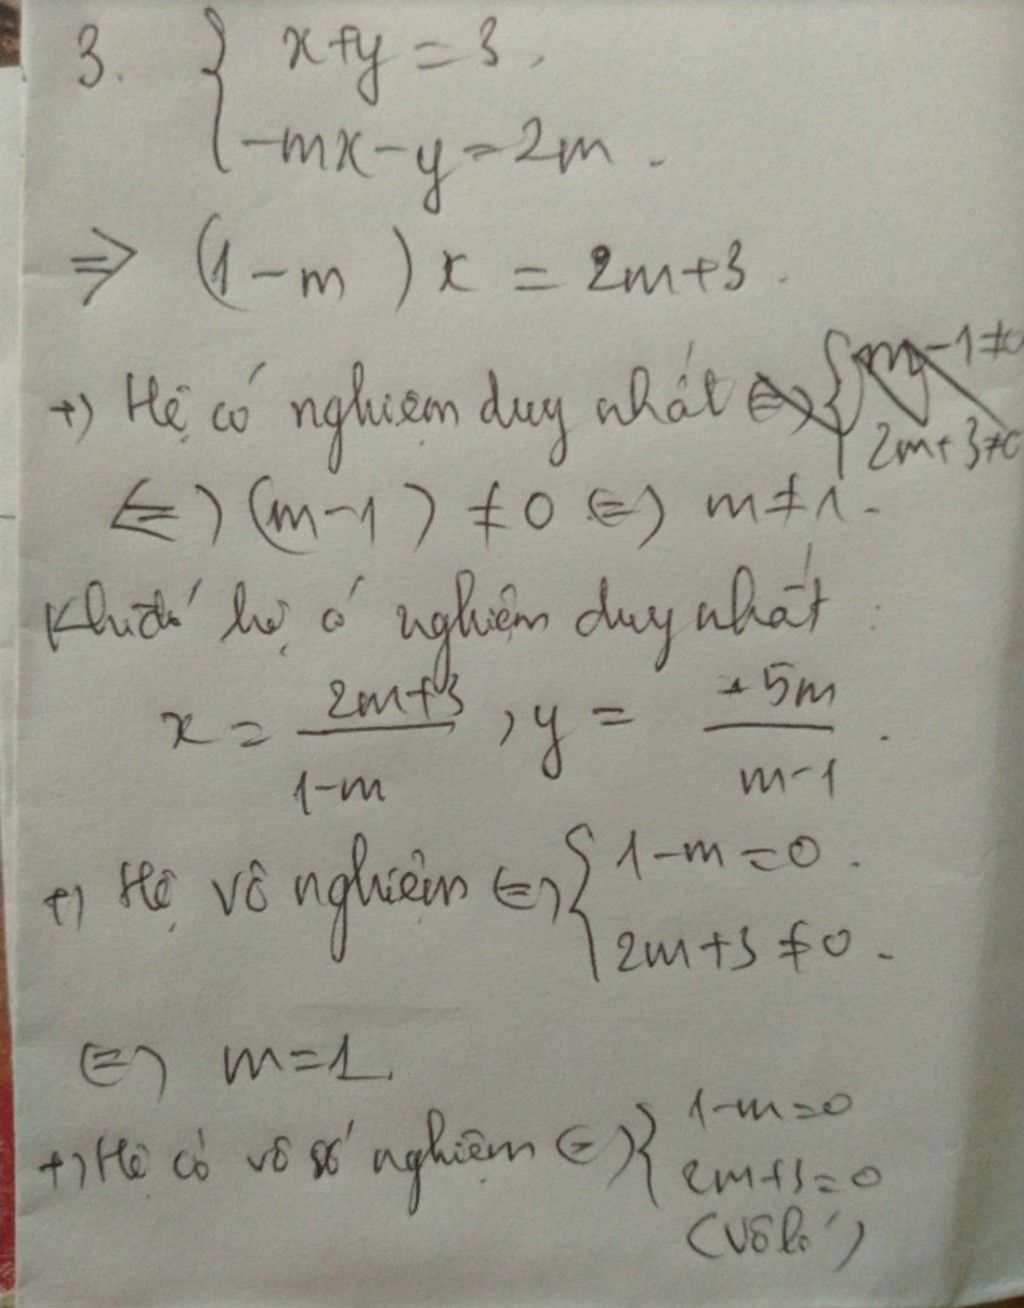 3. { x+y=3.
-mx-y=2m.
⇒ (1-m)x = 2m+3.
+) Hệ có nghiệm duy nhất ⇔ { m-1≠0
2m+3≠0
⇔ (m-1) ≠ 0 ⇔ m≠1.
Khi đó hệ có nghiệm duy nhất:
x = \frac{2m+3}{1-m}, y = \frac{5m}{m-1}.
+) Hệ vô nghiệm ⇔ { 1-m=0.
2m+3≠0.
⇔ m=1.
+) Hệ có vô số nghiệm ⇔ { 1-m=0
2m+3=0
(Vô lí)